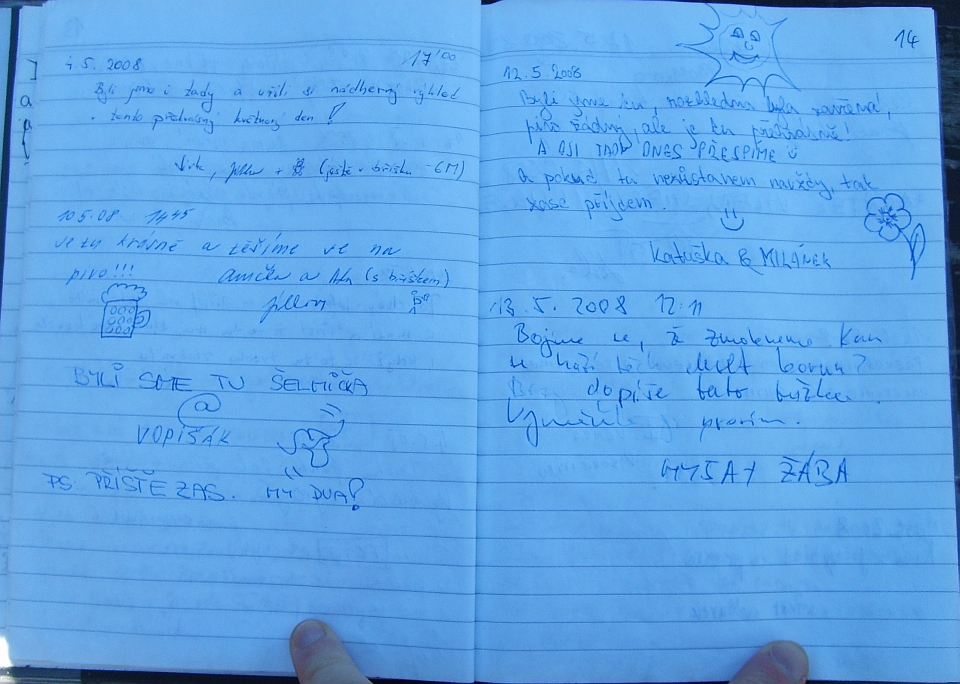 4.5. 2008 17°°
Byli jsme i tady a užili si nádherný výhled
tento překrásný květnový den!
10.5.08 14 45
je tu krásně a těšíme se na
pivo!!! a (s bříškem)
BYLI SME TU ŠELMIČKA
@
VOPIŠÁK
PS. PŘÍŠTĚ ZAS. MY DVA!
14
12.5.2008
Byli jsme tu, rozhledna byla zavřená,
pivo žádný, ale je tu překrásně!
A OSI TADY DNES PŘESPÍME
a pokud tu nezůstanem navždy, tak
zase přijdem.
Katuška & MILÁNEK
13.5.2008 12:11
Bojíme se, že zmokneme. Kam
se hází deset korun?
dopíše tato tužka.
Vyměňte prosím.
MYŠ A ŽÁBA